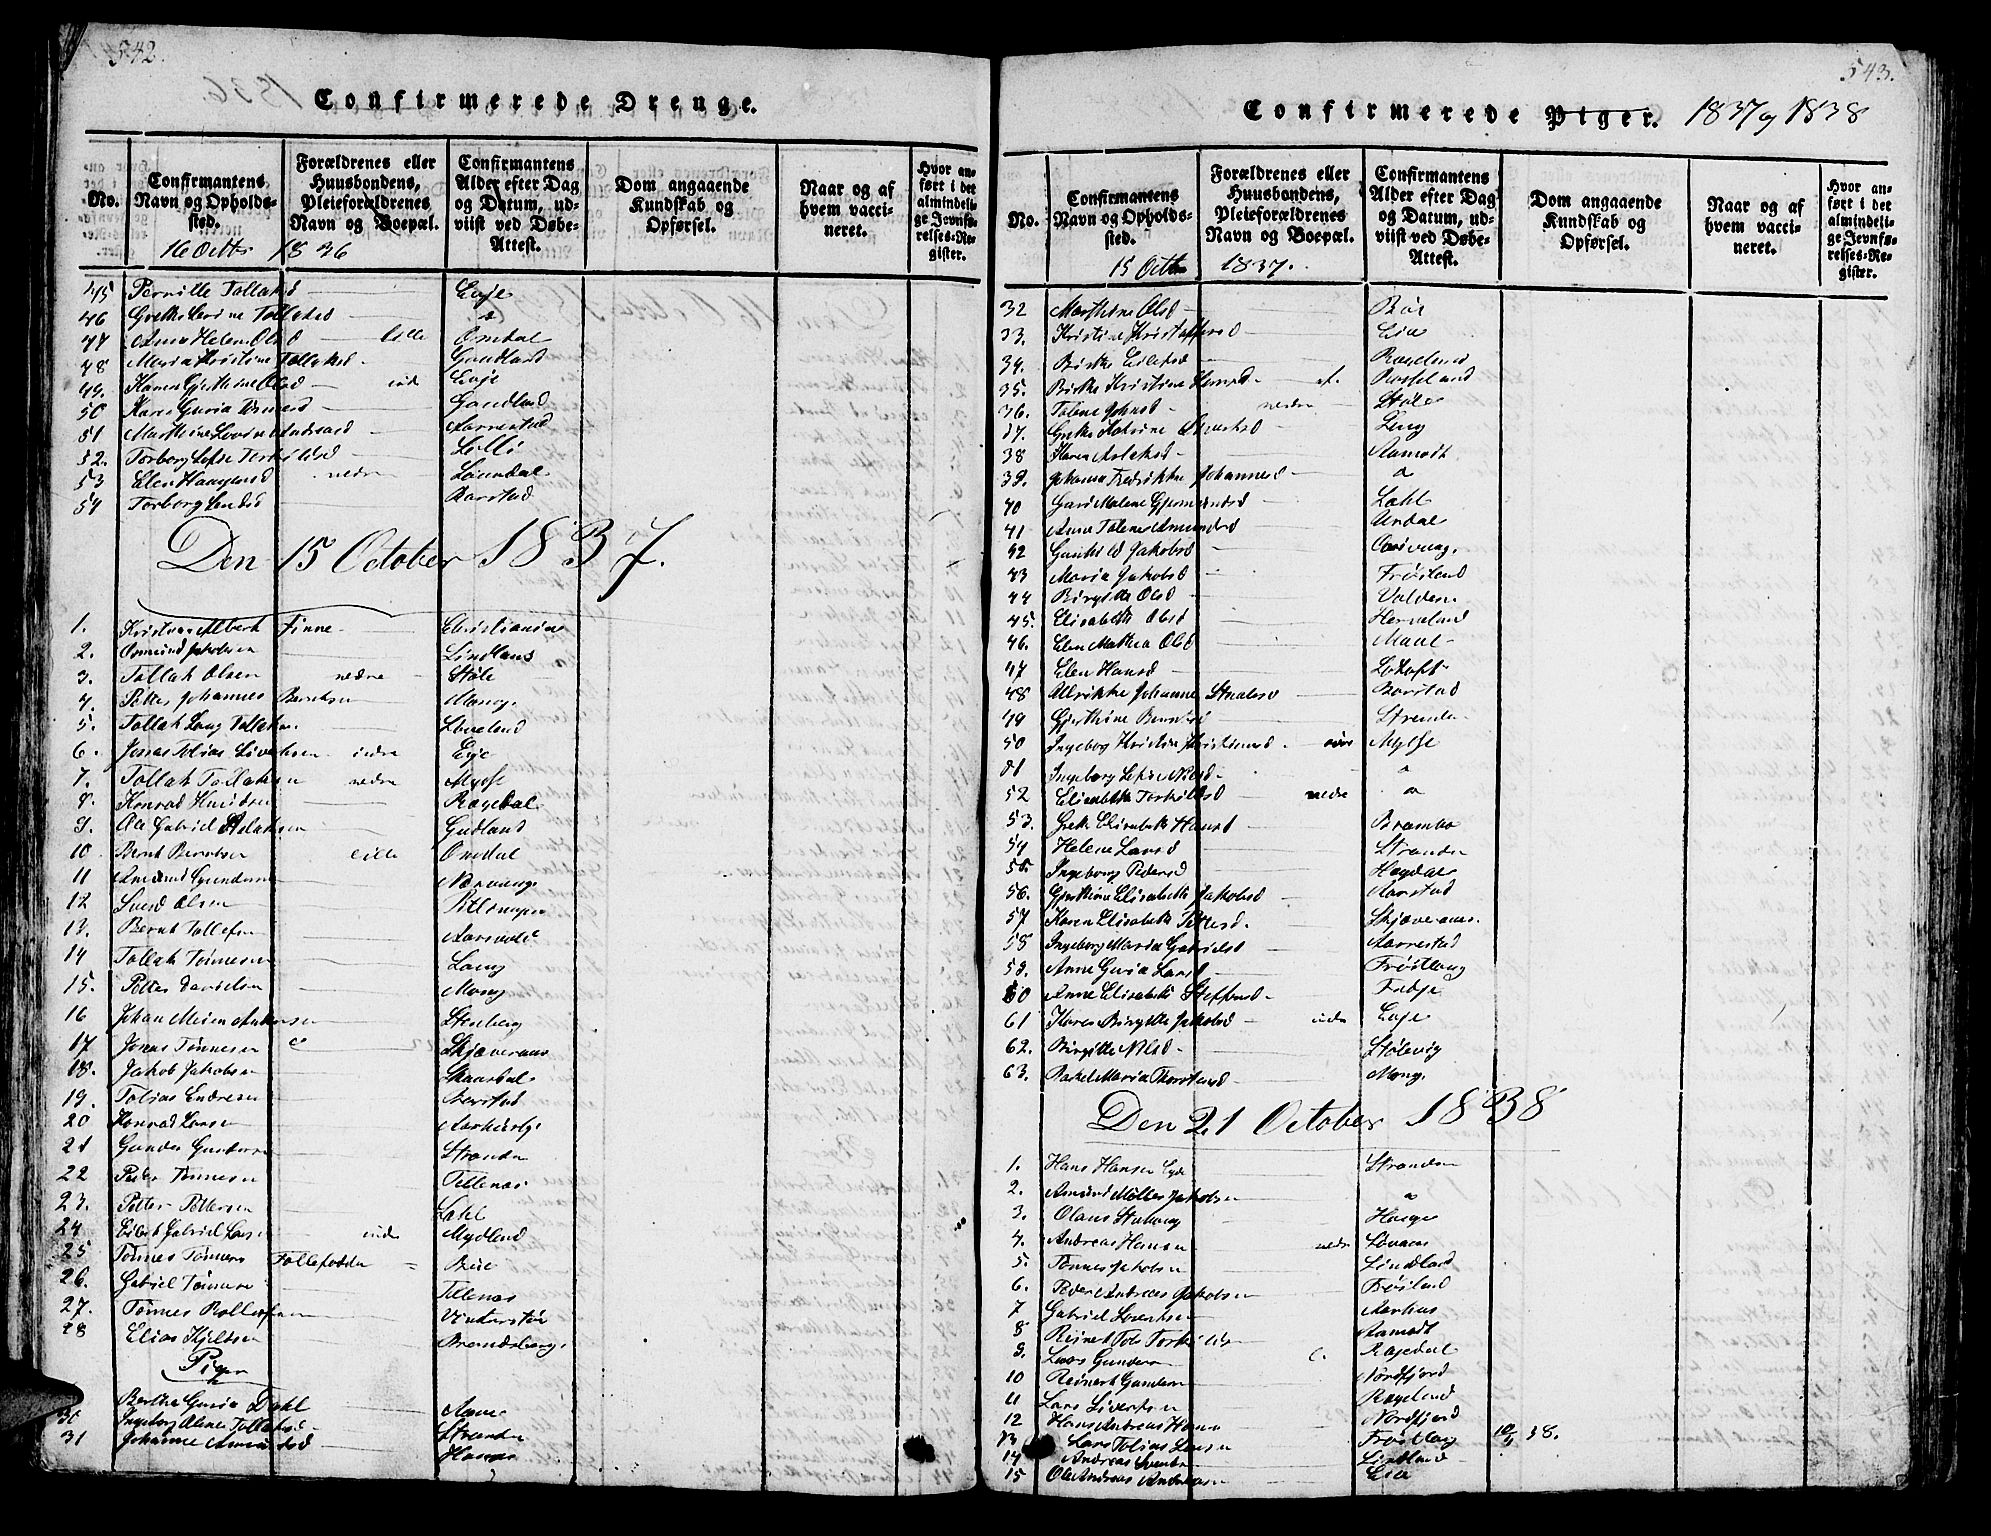 542.
Confirmerede Drenge.
No.
Confirmantens Navn og Opholdssted.
Forældrenes eller Huusbondens, Pleieforældrenes Navn og Boepæl.
Confirmantens Alder efter Dag og Datum, udviist ved Døbe-Attest.
Dom angaaende Kundskab og Opførsel.
Naar og af hvem vaccineret.
Hvor anført i det almindelige Jevnførelses-Register.
16 Octbr 1836
45 Pernille Tollaksd — Eeje
46 Grethe Serine Tollaksd — "
47 Anna Helene Olsd — lille Omdal
48 Maria Kristine Tollaksd. Gudland
49. Karen Gjerthine Olsd — inde Eeje
50 Karen Guria Tonnesd — Gaudland
51 Marthine Lovine Andreasd — Aarrestad
52. Torborg Lefse Torkildsd — Lillø
53 Elen Haagensd nedre Løindal
54 Torborg Larsd Aarstad
Den 15 October 1837.
1. Kristian Albert Finne — Christiania
2. Osmund Jakobsen Lindland
3. Tollak Olsen nedre Støle
4. Petter Johannes Berntsen Mong.
5. Tollak Lang Tollaksen Løveland
6. Jonas Tobias Sivertsen indre Eeje
7. Tollak Tollaksen nedre Mysse
8. Konrad Knudsen Rægedal
9. Ole Gabriel Aslaksen Gudland
10. Bernt Berntsen lille Omdal
11 Amund Gundersen Nærvang
12 Svend Olsen
13. Bernt Tollefsen Aarsvold
14 Tollak Tonnesen Lang
15. Petter Danielsen Mong
16 Johan Meier Andersen Stenberg
17 Jonas Tonnesen Skjæveraas
18. Jakob Jakobsen Skaardal
19. Tobias Endresen Berstad
20 Konrad Larsen
21 Gunder Gundersen Stranden
22 Peder Tonnesen Tellenæs
23. Petter Pettersen Lahl
24. Eilert Gabriel Larsen inde Mydland
25 Tonnes Tonnesen Tollefodden Bue
26. Gabriel Tonnesen Tellenæs
27. Tonnes Rollefsen Vinterstø
28 Elias Kjeldsen Brandsberg.
Piger
Berthe Guria Dahl Aave
30 Ingeborg Olene Tollaksd Stranden
31 Johanne Amundsd
543.
Confirmerede Piger. 1837 og 1838
No.
Confirmantens Navn og Opholdssted.
Forældrenes eller Huusbondens, Pleieforældrenes Navn og Boepæl.
Confirmantens Alder efter Dag og Datum, udviist ved Døbe-Attest.
Dom angaaende Kundskab og Opførsel.
Naar og af hvem vaccineret.
Hvor anført i det almindelige Jevnførelses-Register.
15 Octbr 1837.
32 Marthine Olsd — Bøe
33. Kristine Kristoffersd Eia
34. Birthe Eilefsd — Rægeland
35. Birthe Kristine Hansd — Rosseland
36. Talene Johnsd — nedre Støle
37. Grethe Katrine Sivertsd Leug
38 Karen Aslaksd — Aamodt
39. Johanna Fredrikke Johannesd — "
40 Guri Malene Gjermundsd Lahl
41 Anne Talene Amundsd Urdal
42 Gunhild Jakobsd
43 Maria Jakobsd Frøstland
44 Birgithe Olsd
45. Elisabeth Olsd
46. Elen Marthea Olsd
47 Elen Hansd Lotoft
48 Ullrikke Johanne Staalesd Barstad
49 Gjerthine Berntsd Stranden
50 Ingeborg Kristine Kristiansd — over Mysse
51 Ingeborg Lefse Nilsd — "
52 Elisabeth Torkildsd nedre "
53. Grethe Elisabeth Hansd — Brambo
54 Helene Larsd — Stranden
55. Ingeborg Pedersd Hegdal
56. Gjerthine Elisabeth Jakobsd Aarstad
57 Karen Elisabeth Pettersd. Skjæveraas.
58 Ingeborg Maria Gabrielsd Aarrestad
59. Anne Guria Larsd Frøitlaug
60 Anne Elisabeth Steffensd — Fedje
61 Karen Birgithe Jakobsd — inde Eeje
62. Birgitte Nilsd — Stølevig
63. Rakel Maria Thorstensd Mong.
Den 21 October 1838
1. Hans Hansen Eyde Stranden
2. Amund Møller Jakobsen "
3. Olaus Stuhaug Hauge
4. Andreas Hansen nedre Løvaas
5. Tonnes Jakobsen Lindland
6. Peder Andreas Jakobsen Frøstlad
7 Gabriel Sivertsen Aarhus
8 Reinert Tobias Torkildsen Aamodt
9. Lars Gundersen Rægedal
10 Reinert Gundersen Nordfjord
11 Lars Sivertsen Rægeland
12 Hans Andreas Hansen Nordfjord
13 Lars Tobias Larsen Frøitlaug 10/11 38.
14 Andreas Svendsen Lindland
15 Ole Andreas Andreasen Eia